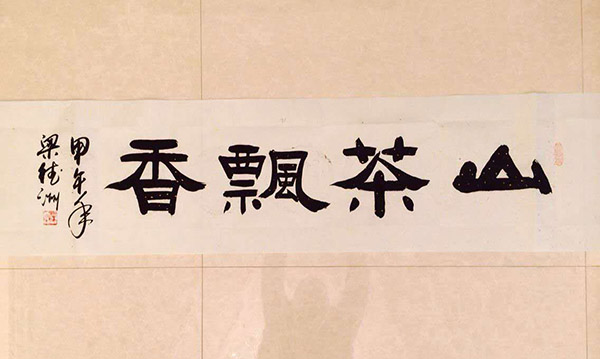 山茶飄香
甲午年
梁德洲